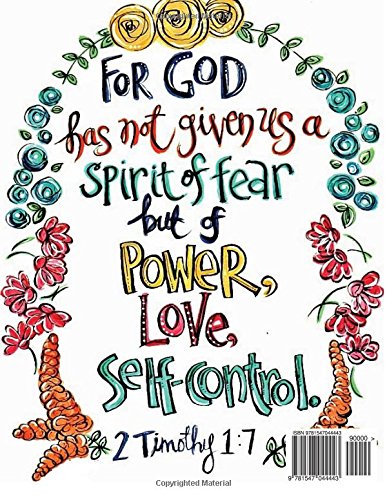 FOR GOD
has not given us a
spirit of fear
but of
POWER,
LOVE,
self-control.
2 Timothy 1:7
ISBN 9781547044443
90000 >
9 781547 044443
Copyrighted Material